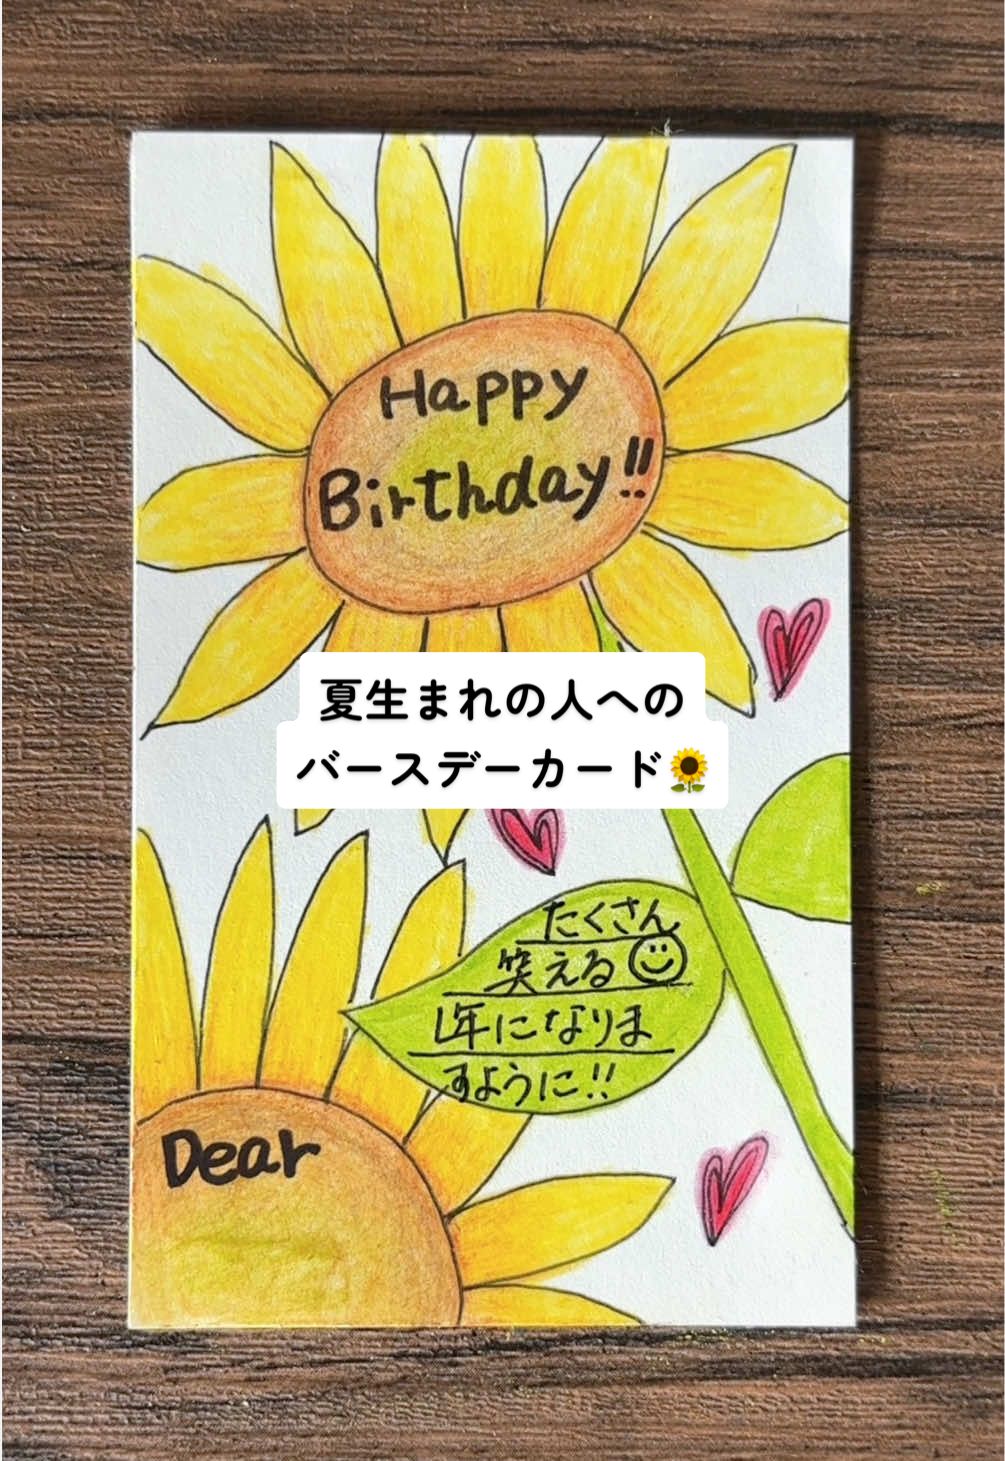 Happy
Birthday!!
夏生まれの人への
バースデーカード🌻
たくさん
笑える☺
1年になりま
すように!!
Dear